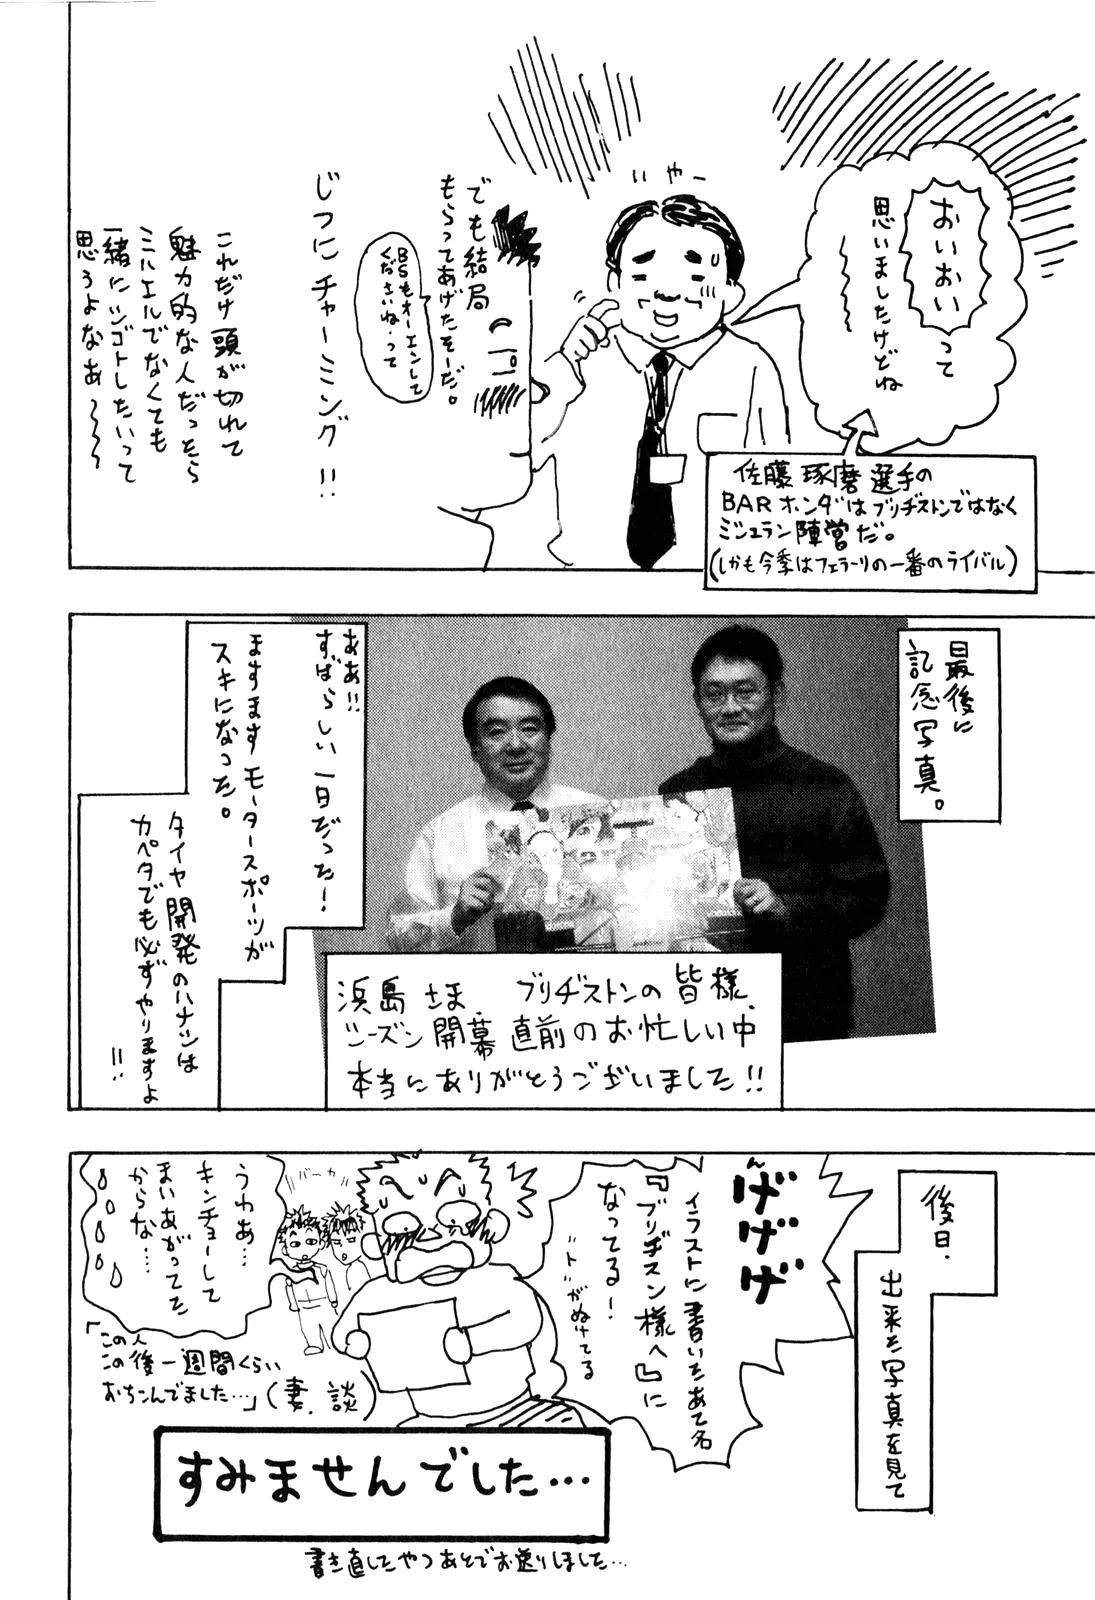 いやー
おいおいって
思いましたけどね
佐藤琢磨選手の
BARホンダはブリヂストンではなく
ミシュラン陣営だ。
(しかも今季はフェラーリの一番のライバル)
でも結局
もらってあげたそーだ。
BSもオーエンして
くださいね。って
じつにチャーミング!!
これだけ頭が切れて
魅力的な人だったら
ミハエルでなくても
一緒にシゴトしたいって
思うよなあ〜〜〜
最後に
記念写真。
ああ!!
すばらしい一日だった!
ますますモータースポーツが
スキになった。
タイヤ開発のハナシは
カペタでも必ずやりますよ
!!
浜島さま、ブリヂストンの皆様、
シーズン開幕直前のお忙しい中
本当にありがとうございました!!
後日、
出来た写真を見て
んげげげ
イラストに書いたあて名
『ブリヂスン様へ』に
なってる!
"ト"がぬけてる
バーカ
うわぁ…
キンチョーして
まいあがってた
からな…
「この人
この後一週間くらい
おちこんでました…」(妻、談)
すみませんでした…
書き直したやつあとでお送りしました…